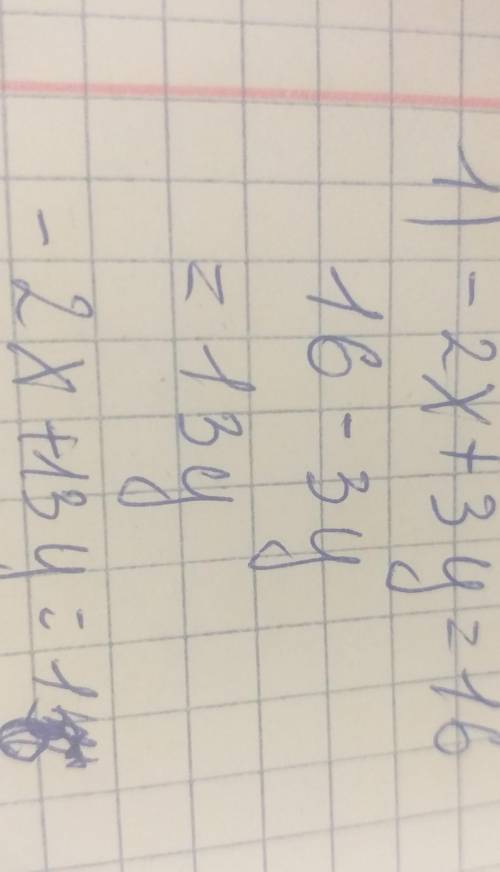 1) -2x+3y=16
16-3y
=13y
-2x+13y=1